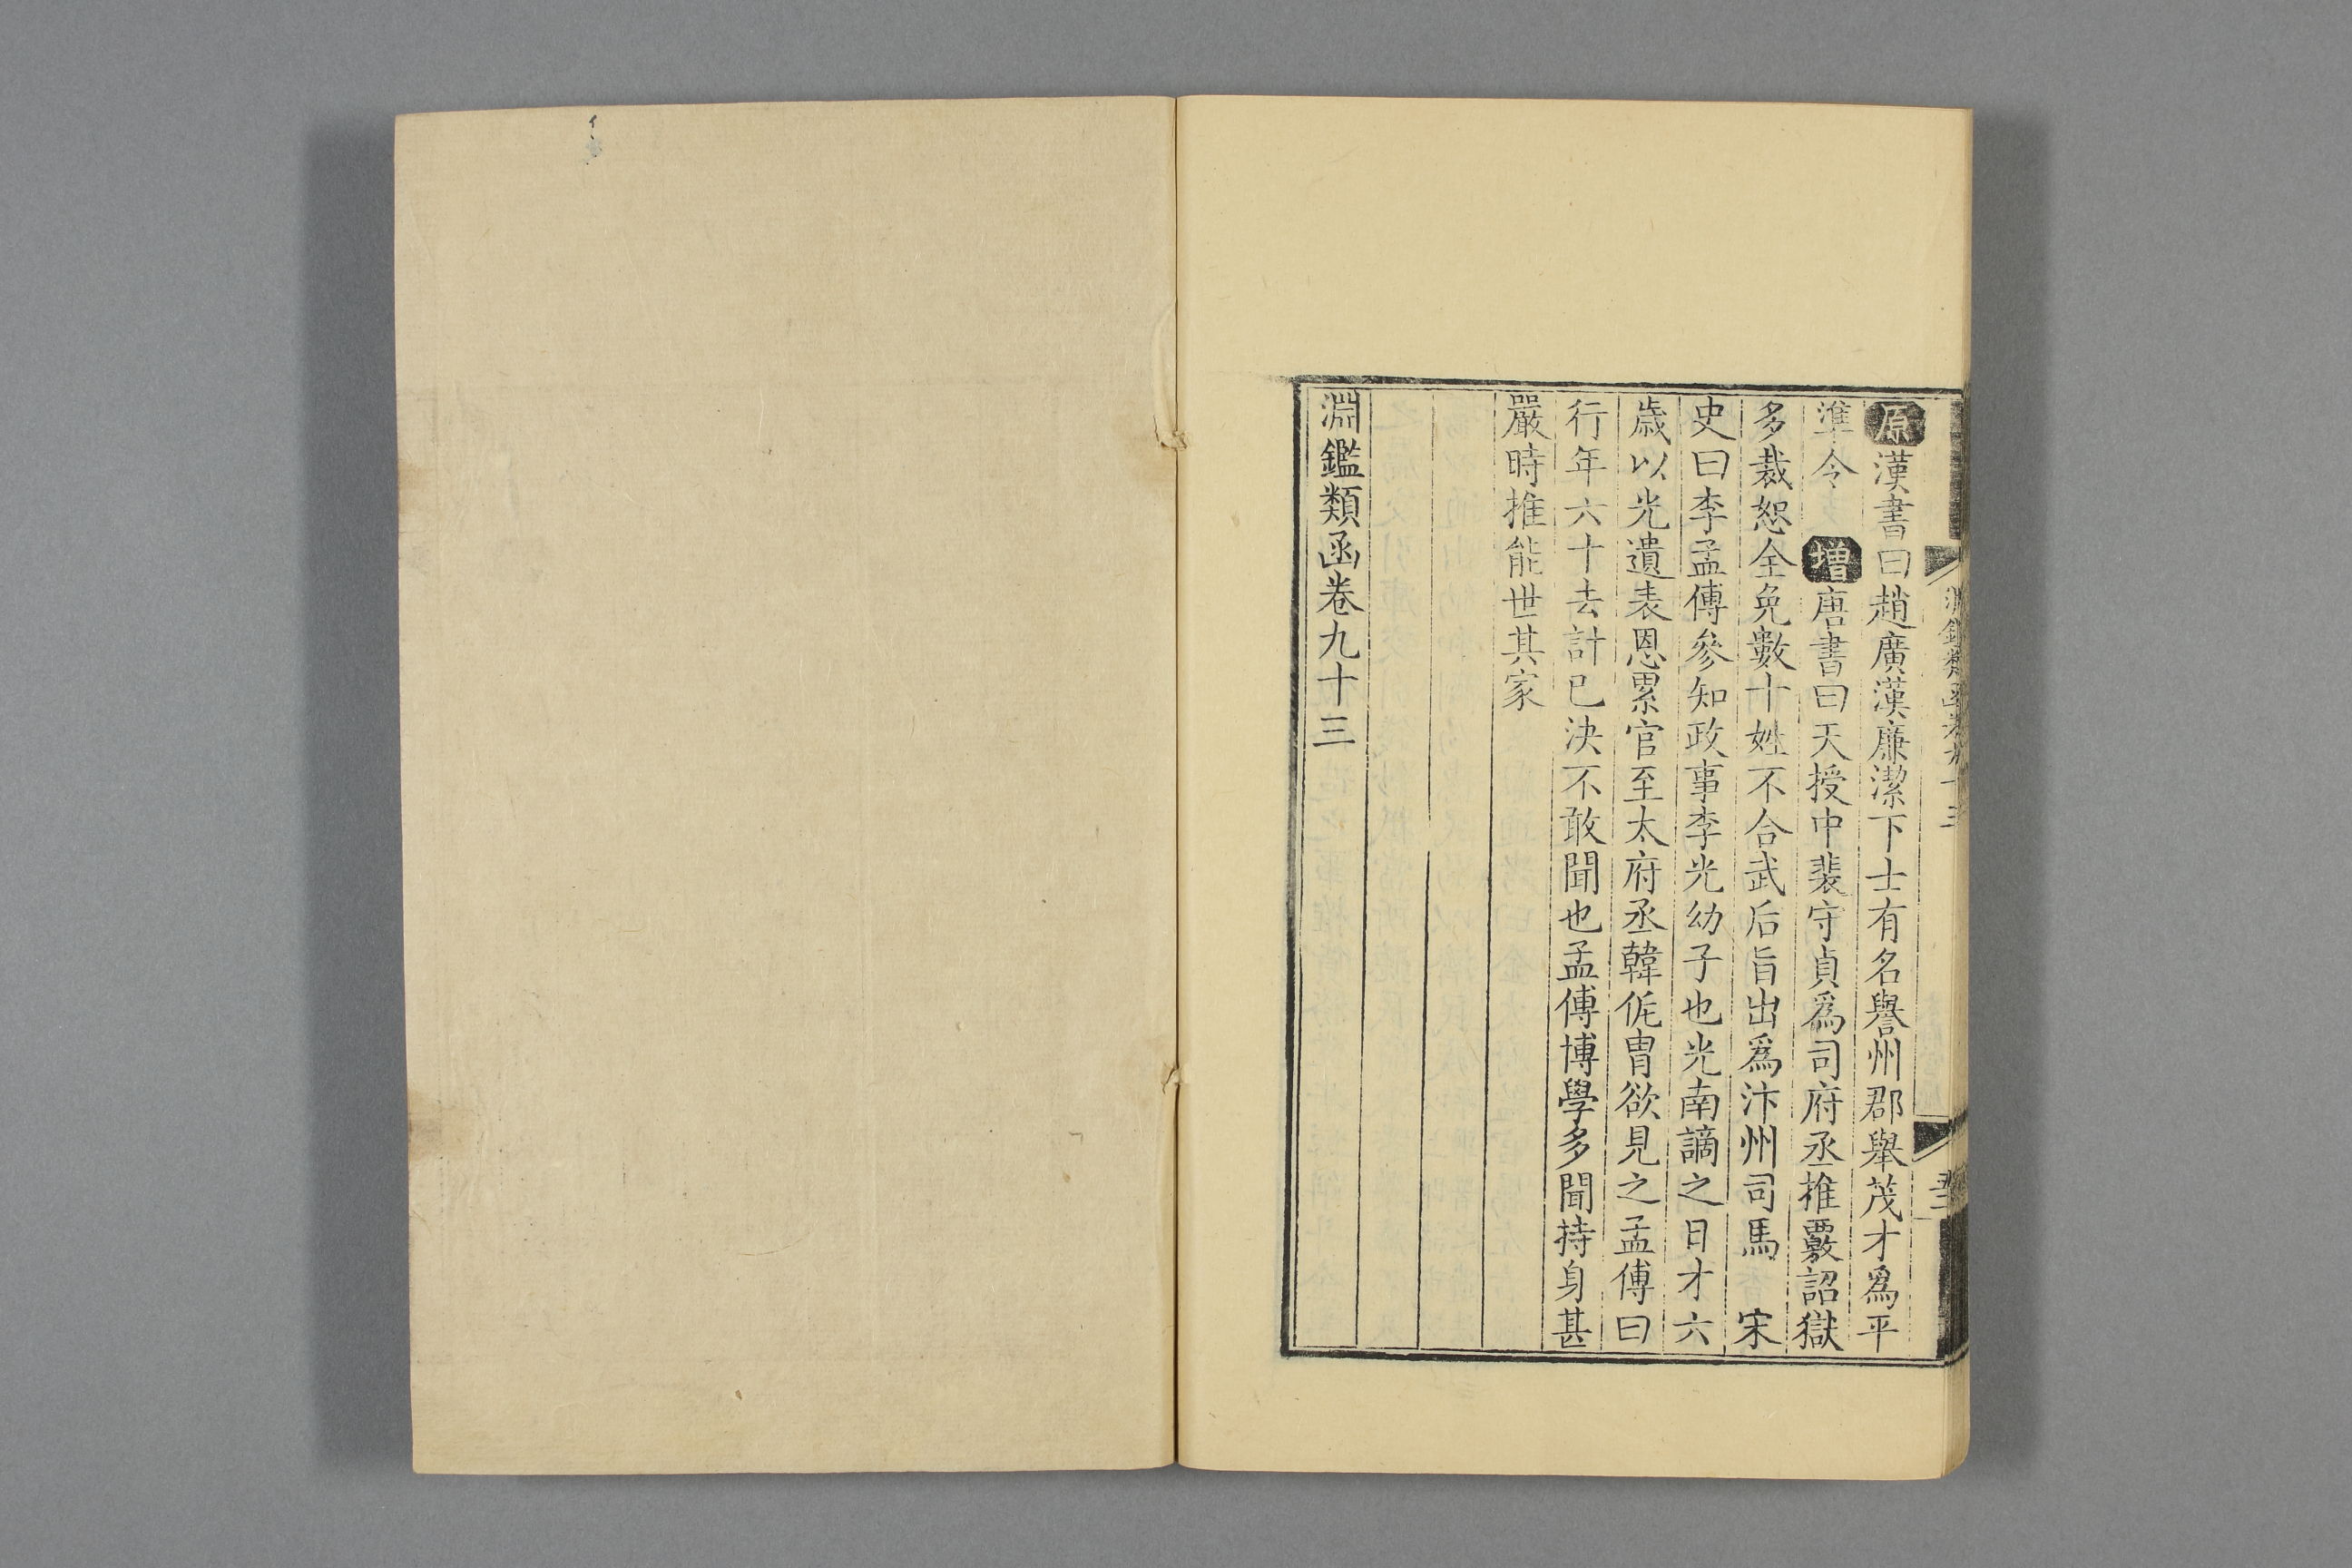 原漢書曰趙廣漢廉潔下士有名譽州郡舉茂才爲平
準令　增唐書曰天授中裴守貞爲司府丞推覈詔獄
多裁恕全免數十姓不合武后旨出爲汴州司馬　宋
史曰李孟傳參知政事李光幼子也光南謫之日才六
歲以光遺表恩累官至太府丞韓侂冑欲見之孟傳曰
行年六十去計已決不敢聞也孟傳博學多聞持身甚
嚴時推能世其家
淵鑑類函卷九十三